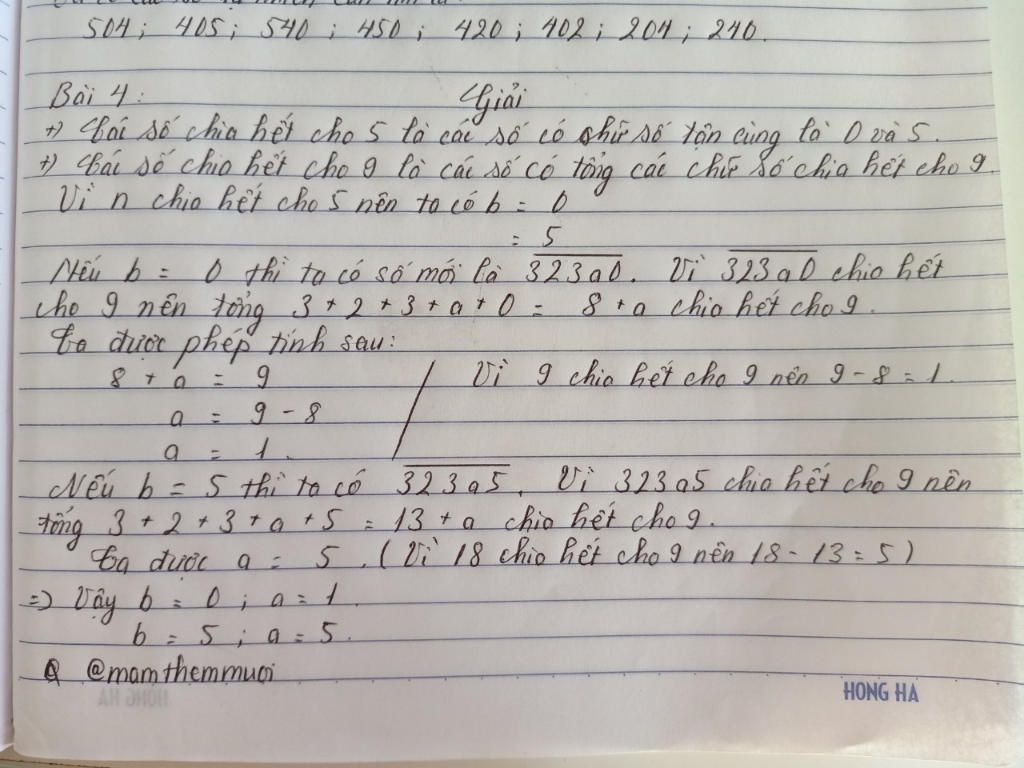 504; 405; 540; 450; 420; 402; 204; 240.
Bài 4: Giải
+) Các số chia hết cho 5 là các số có chữ số tận cùng là 0 và 5.
+) Các số chia hết cho 9 là các số có tổng các chữ số chia hết cho 9.
Vì n chia hết cho 5 nên ta có b = 0
= 5
Nếu b = 0 thì ta có số mới là 323a0. Vì 323a0 chia hết
cho 9 nên tổng 3 + 2 + 3 + a + 0 = 8 + a chia hết cho 9.
Ta được phép tính sau:
8 + a = 9 / Vì 9 chia hết cho 9 nên 9 - 8 = 1.
a = 9 - 8
a = 1.
Nếu b = 5 thì ta có 323a5. Vì 323a5 chia hết cho 9 nên
tổng 3 + 2 + 3 + a + 5 = 13 + a chia hết cho 9.
Ta được a = 5. (Vì 18 chia hết cho 9 nên 18 - 13 = 5)
=> Vậy b = 0; a = 1.
b = 5; a = 5.
@mamthemmuoi
HONG HA